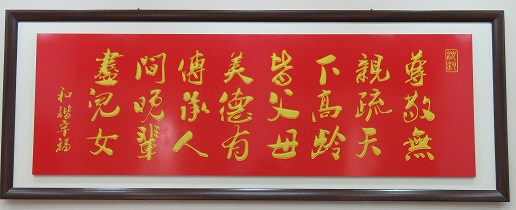 尊敬無
親疏天
下高齡
皆父母
美德有
傳承人
間晚輩
盡兒女
和諧幸福